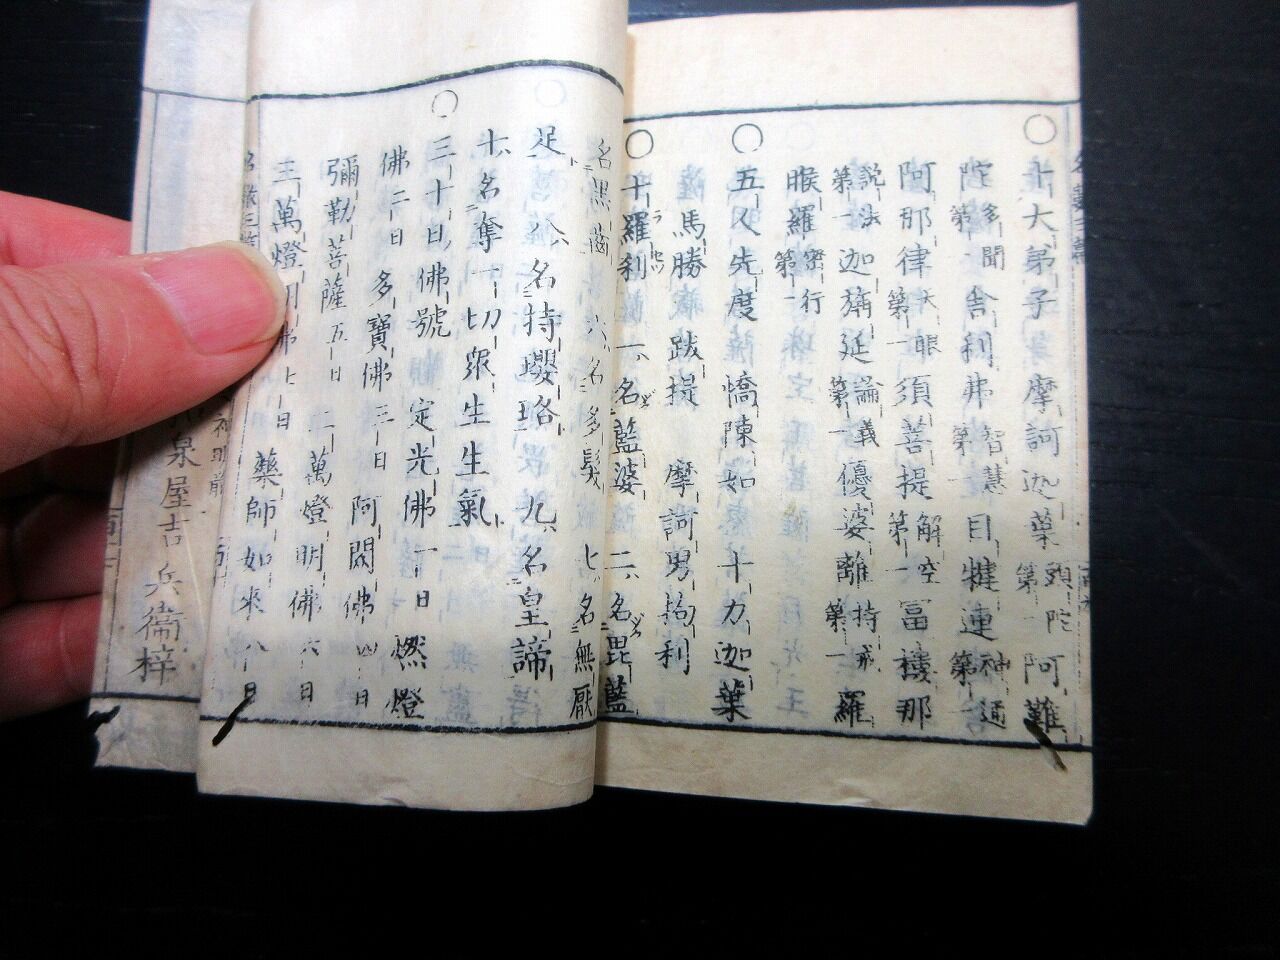 ○十大弟子 摩訶迦葉 頭陀第一 阿難
陀 多聞第一 舎利弗 智慧第一 目犍連 神通第一
阿那律 天眼第一 須菩提 解空第一 富楼那
説法第一 迦旃延 論義第一 優婆離 持戒第一 羅
睺羅 密行第一
○五人先度 憍陳如 十力迦葉
馬勝 跋提 摩訶男拘利
○十羅刹 一、名藍婆 二、名毘藍
名黒歯 六、名多髪 七、名無厭
足 八、名持瓔珞 九、名皇諦
十、名奪一切衆生生氣
○三十日佛號 定光佛 一日 燃燈
佛 二日 多寶佛 三日 阿閦佛 四日
彌勒菩薩 五日 二萬燈明佛 六日
三萬燈明佛 七日 藥師如來 八日
泉屋吉兵衞梓